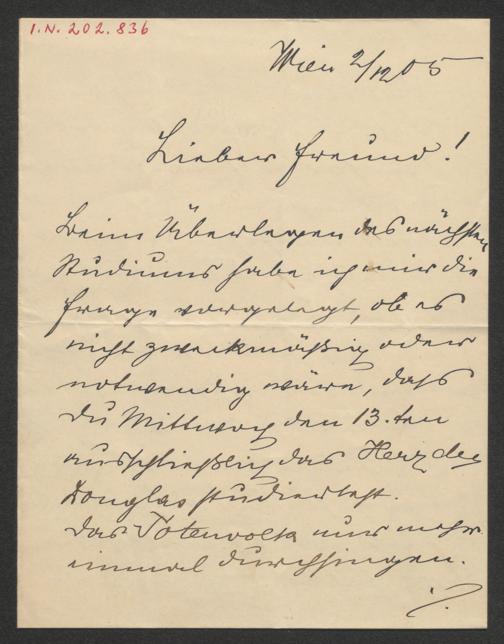 I.N. 202.836
Wien 2/12 05
Lieber Freund!
Beim Überlegen des nächsten
Studiums habe ich mir die
Frage vorgelegt, ob es
nicht zweckmäßig oder
notwendig wäre, daß
Du Mittwoch den 13. ten
ausschließlich das Herz des
Douglas studiertest.
Das Totenvolk nur mehr
einmal durchsingen.